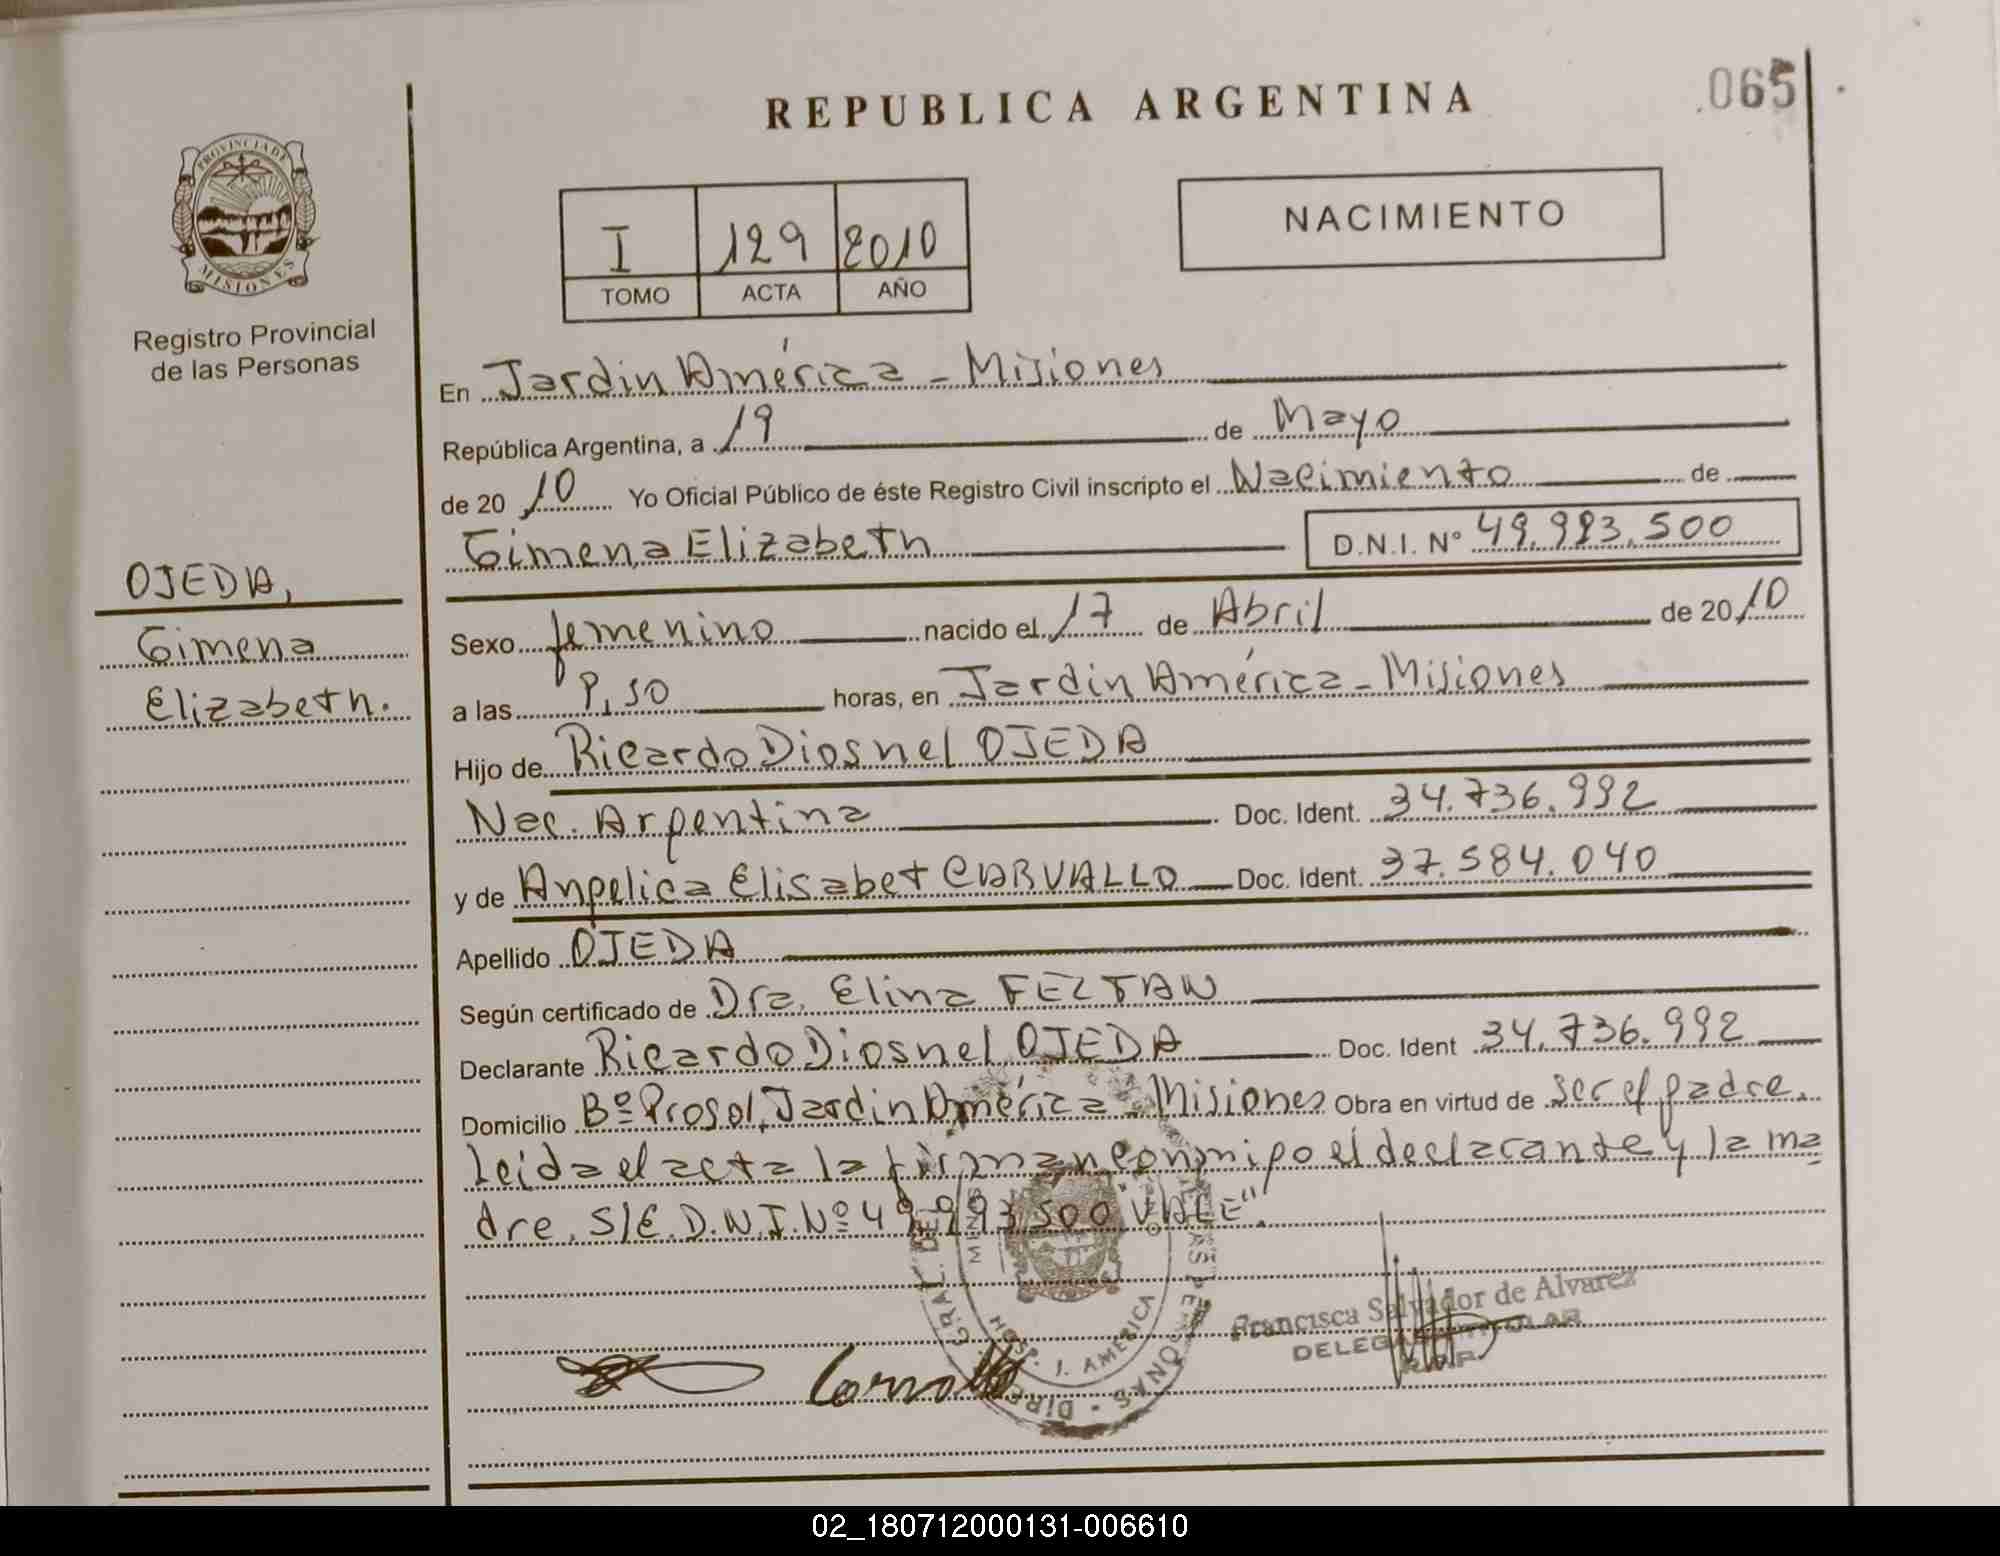 REPUBLICA ARGENTINA
.065
PROVINCIA DE MISIONES
Registro Provincial
de las Personas
I 129 2010
TOMO ACTA AÑO
NACIMIENTO
En Jardin América - Misiones
República Argentina, a 19 de Mayo
de 20 10 Yo Oficial Público de éste Registro Civil inscripto el Nacimiento de
Gimena Elizabeth D.N.I. N° 49.993.500
OJEDA,
Gimena
Elizabeth.
Sexo femenino nacido el 17 de Abril de 20 10
a las horas, en Jardin América - Misiones
Hijo de Ricardo Diosnel OJEDA
Nac. Argentina Doc. Ident. 34.736.992
y de Angelica Elisabet CARVALLO Doc. Ident. 37.584.040
Apellido OJEDA
Según certificado de Dra. Elina FELTAN
Declarante Ricardo Diosnel OJEDA Doc. Ident 34.736.992
Domicilio Bº Prosol, Jardin América - Misiones Obra en virtud de ser el padre.
Leida el acta la firman conmigo el declarante y la ma
dre. S/E. D.N.I. Nº 49.993.500 "VALE".
Francisca Salvador de Alvarez
DELEGADA TITULAR
R.P.P.
HOSP. J. AMERICA
02_180712000131-006610